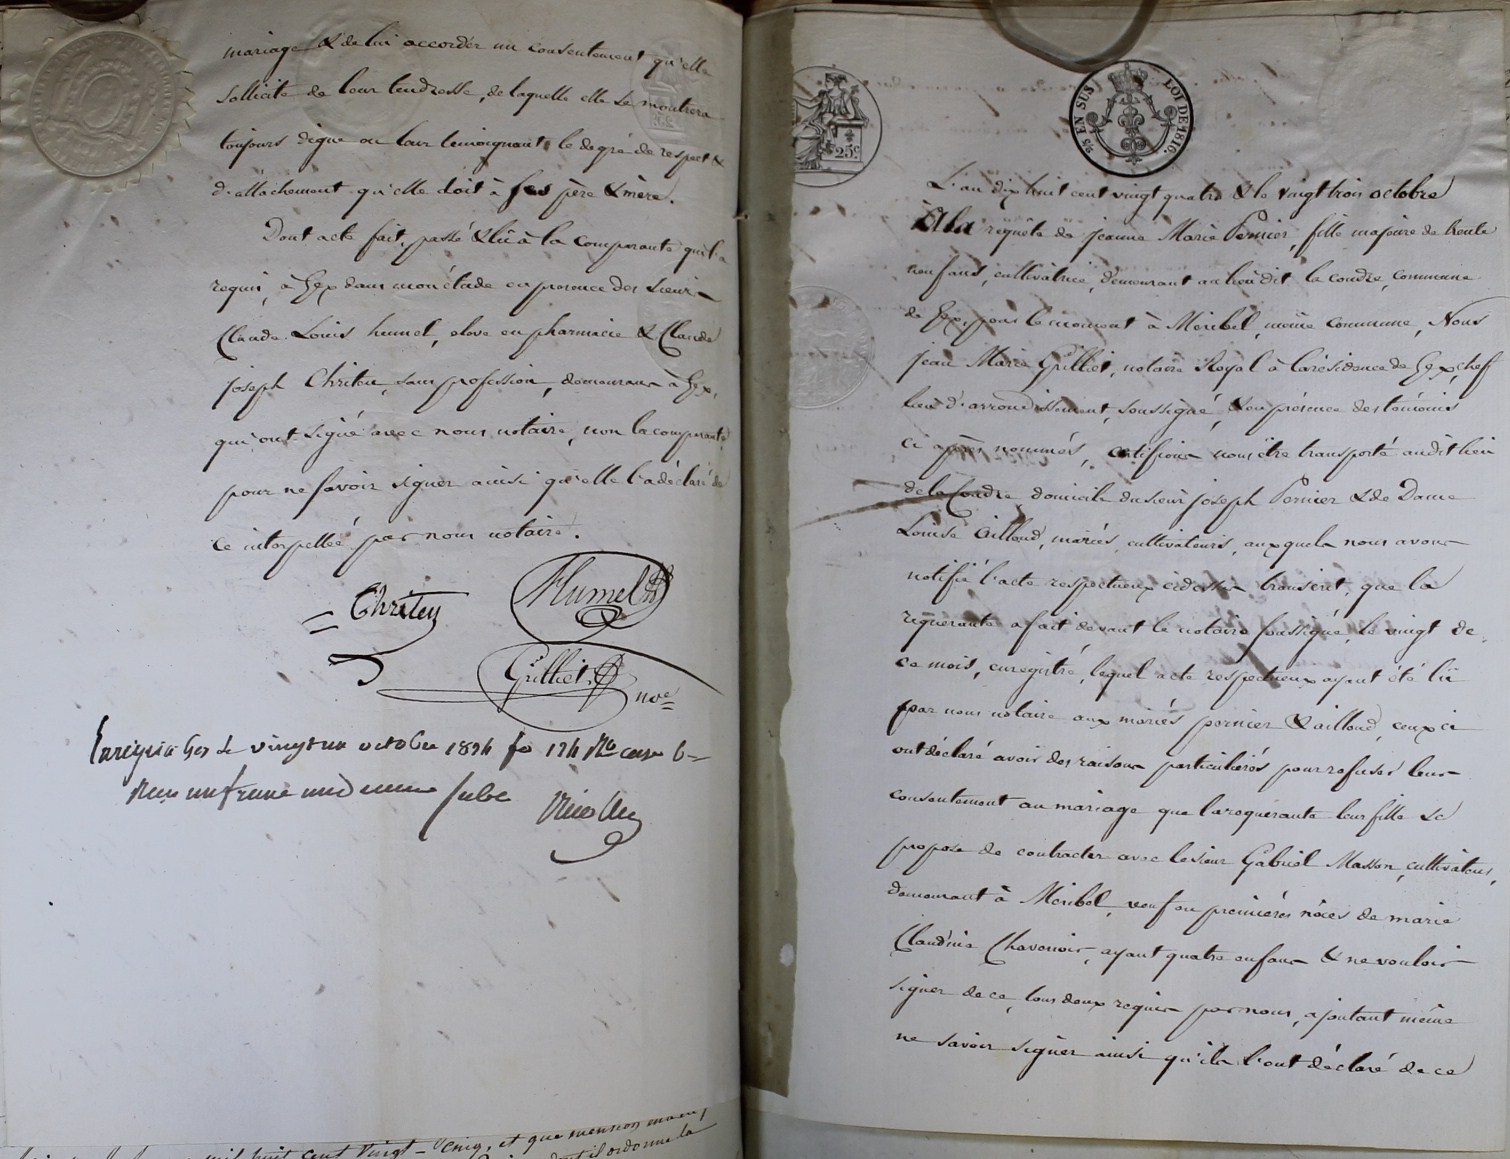 mariage & de lui accorder un consentement qu'elle
sollicite de leur tendresse, de laquelle elle se montrera
toujours digne en leur témoignant le degré de respect &
d'attachement qu'elle doit à ses père & mère.
Dont acte fait, passé & lû à la comparante qui l'a
requis, à Gex dans mon étude en présence des sieurs
Claude Louis humel, élève en pharmacie & Claude
joseph Chriten, sans profession, demeurans à Gex,
qui ont signé avec nous notaire, non la comparante
pour ne savoir signer ainsi qu'elle l'a déclaré de
ce interpellée par nous notaire.
Chriten Humel
Grilliet nre
Enregistré à Gex le vingt un octobre 1824 fo 174 Ro case 6
Reçu un franc
25c
25 EN SUS LOI DE 1816.
L'an dix huit cent vingt quatre & le vingt trois octobre
A la requête de jeanne Marie Pernier, fille majeure de trente
neuf ans, cultivatrice, demeurant au lieu dit la Coudre, commune
de Gex, pour le moment à Méribel, même commune, Nous
jean Marie Grilliet, notaire Royal à la résidence de Gex, chef
lieu d'arrondissement, soussigné, & en présence des témoins
ci après nommés, certifions nous être transporté au dit lieu
de la Coudre domicile du sieur joseph Pernier & de Dame
Louise Ailloud, mariés cultivateurs, auxquels nous avons
notifié l'acte respectueux ci dessus transcrit, que la
requérante a fait devant le notaire soussigné, le vingt de
ce mois, enregistré, lequel acte respectueux ayant été lû
par nous notaire aux mariés pernier & ailloud, ceux ci
ont déclaré avoir des raisons particulières pour refuser leur
consentement au mariage que la requérante leur fille se
propose de contracter avec le sieur Gabriel Masson, cultivateur,
demeurant à Méribel, veuf en premières nôces de marie
Claudine Chavenoir, ayant quatre enfans & ne vouloir
signer de ce, tous deux requis par nous, ajoutant même
ne savoir signer ainsi qu'ils l'ont déclaré de ce
huit cent vingt-cinq, et que mention
ordonne la